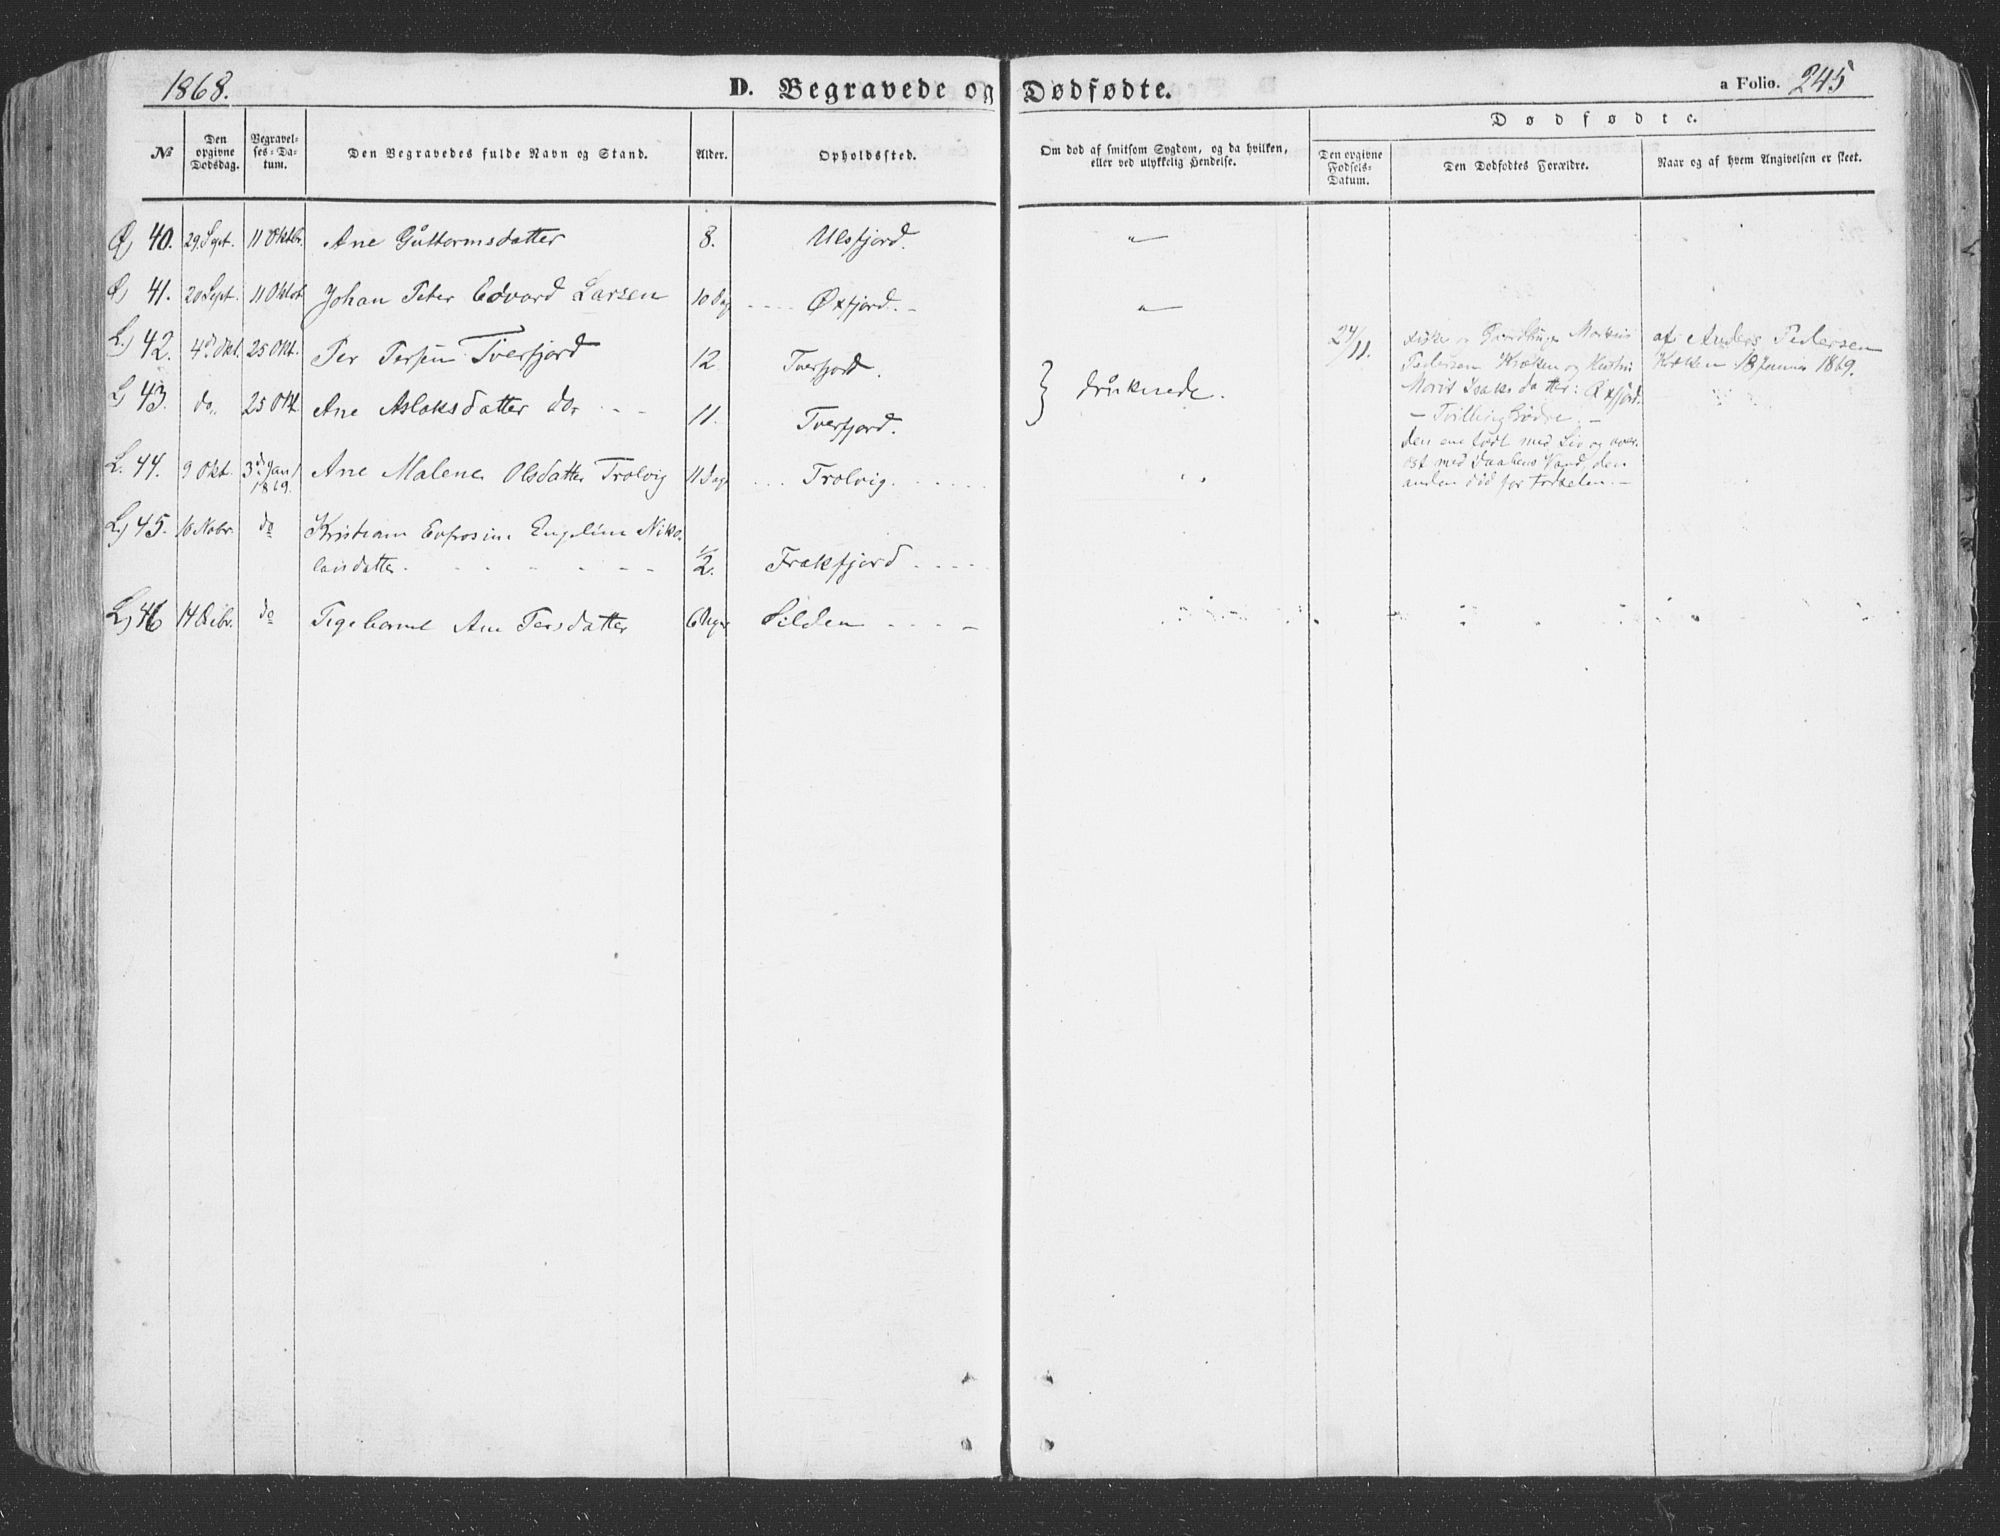 1868. D. Begravede og Dødfødte. a Folio. 245
Dødfødte.
No Den opgivne Dødsdag. Begravelses-Datum. Den Begravedes fulde Navn og Stand. Alder. Opholdssted. Om død af smitsom Sygdom, og da hvilken, eller ved ulykkelig Hendelse. Den opgivne Fødsels-Datum. Den Dødfødtes Forældre. Naar og af hvem Angivelsen er skeet.
40. 29. Sept. 11 Oktbr. Ane Guttormsdatter 8. Ulsfjord. "
41. 20 Sept. 11 Oktob. Johan Peter Edvard Larsen 10 Dag Øxfjord. "
L. 42. 4de Okt. 25 Okt. Per Persen Tverfjord 12 Tverfjord.
L. 43. do 25 Okt. Ane Aslaksdatter do. 11. Tverfjord.
} druknede.
L. 44. 9 Okt. 3de Jan/1869. Ane Malene Olsdatter Trolvig 11 Dage Trolvig. " "
L. 45. Nobr. do Kristiane Eufrosine Engeline Niko-
laisdatter 1/2. Frakfjord
L. 46 14 Debr. do Pigebarnet Ane Persdatter 6 Uger Silden
24/11. Markus af Anders Pedersen
Pedersen Kræken og Kirstin Kræken 18 Januar 1869.
Marit Isaksdatter: Øxfjord.
– Tvillingfødte. –
den ene født med Liv og over-
øst med Daabens Vand, den
anden død før Fødselen. –